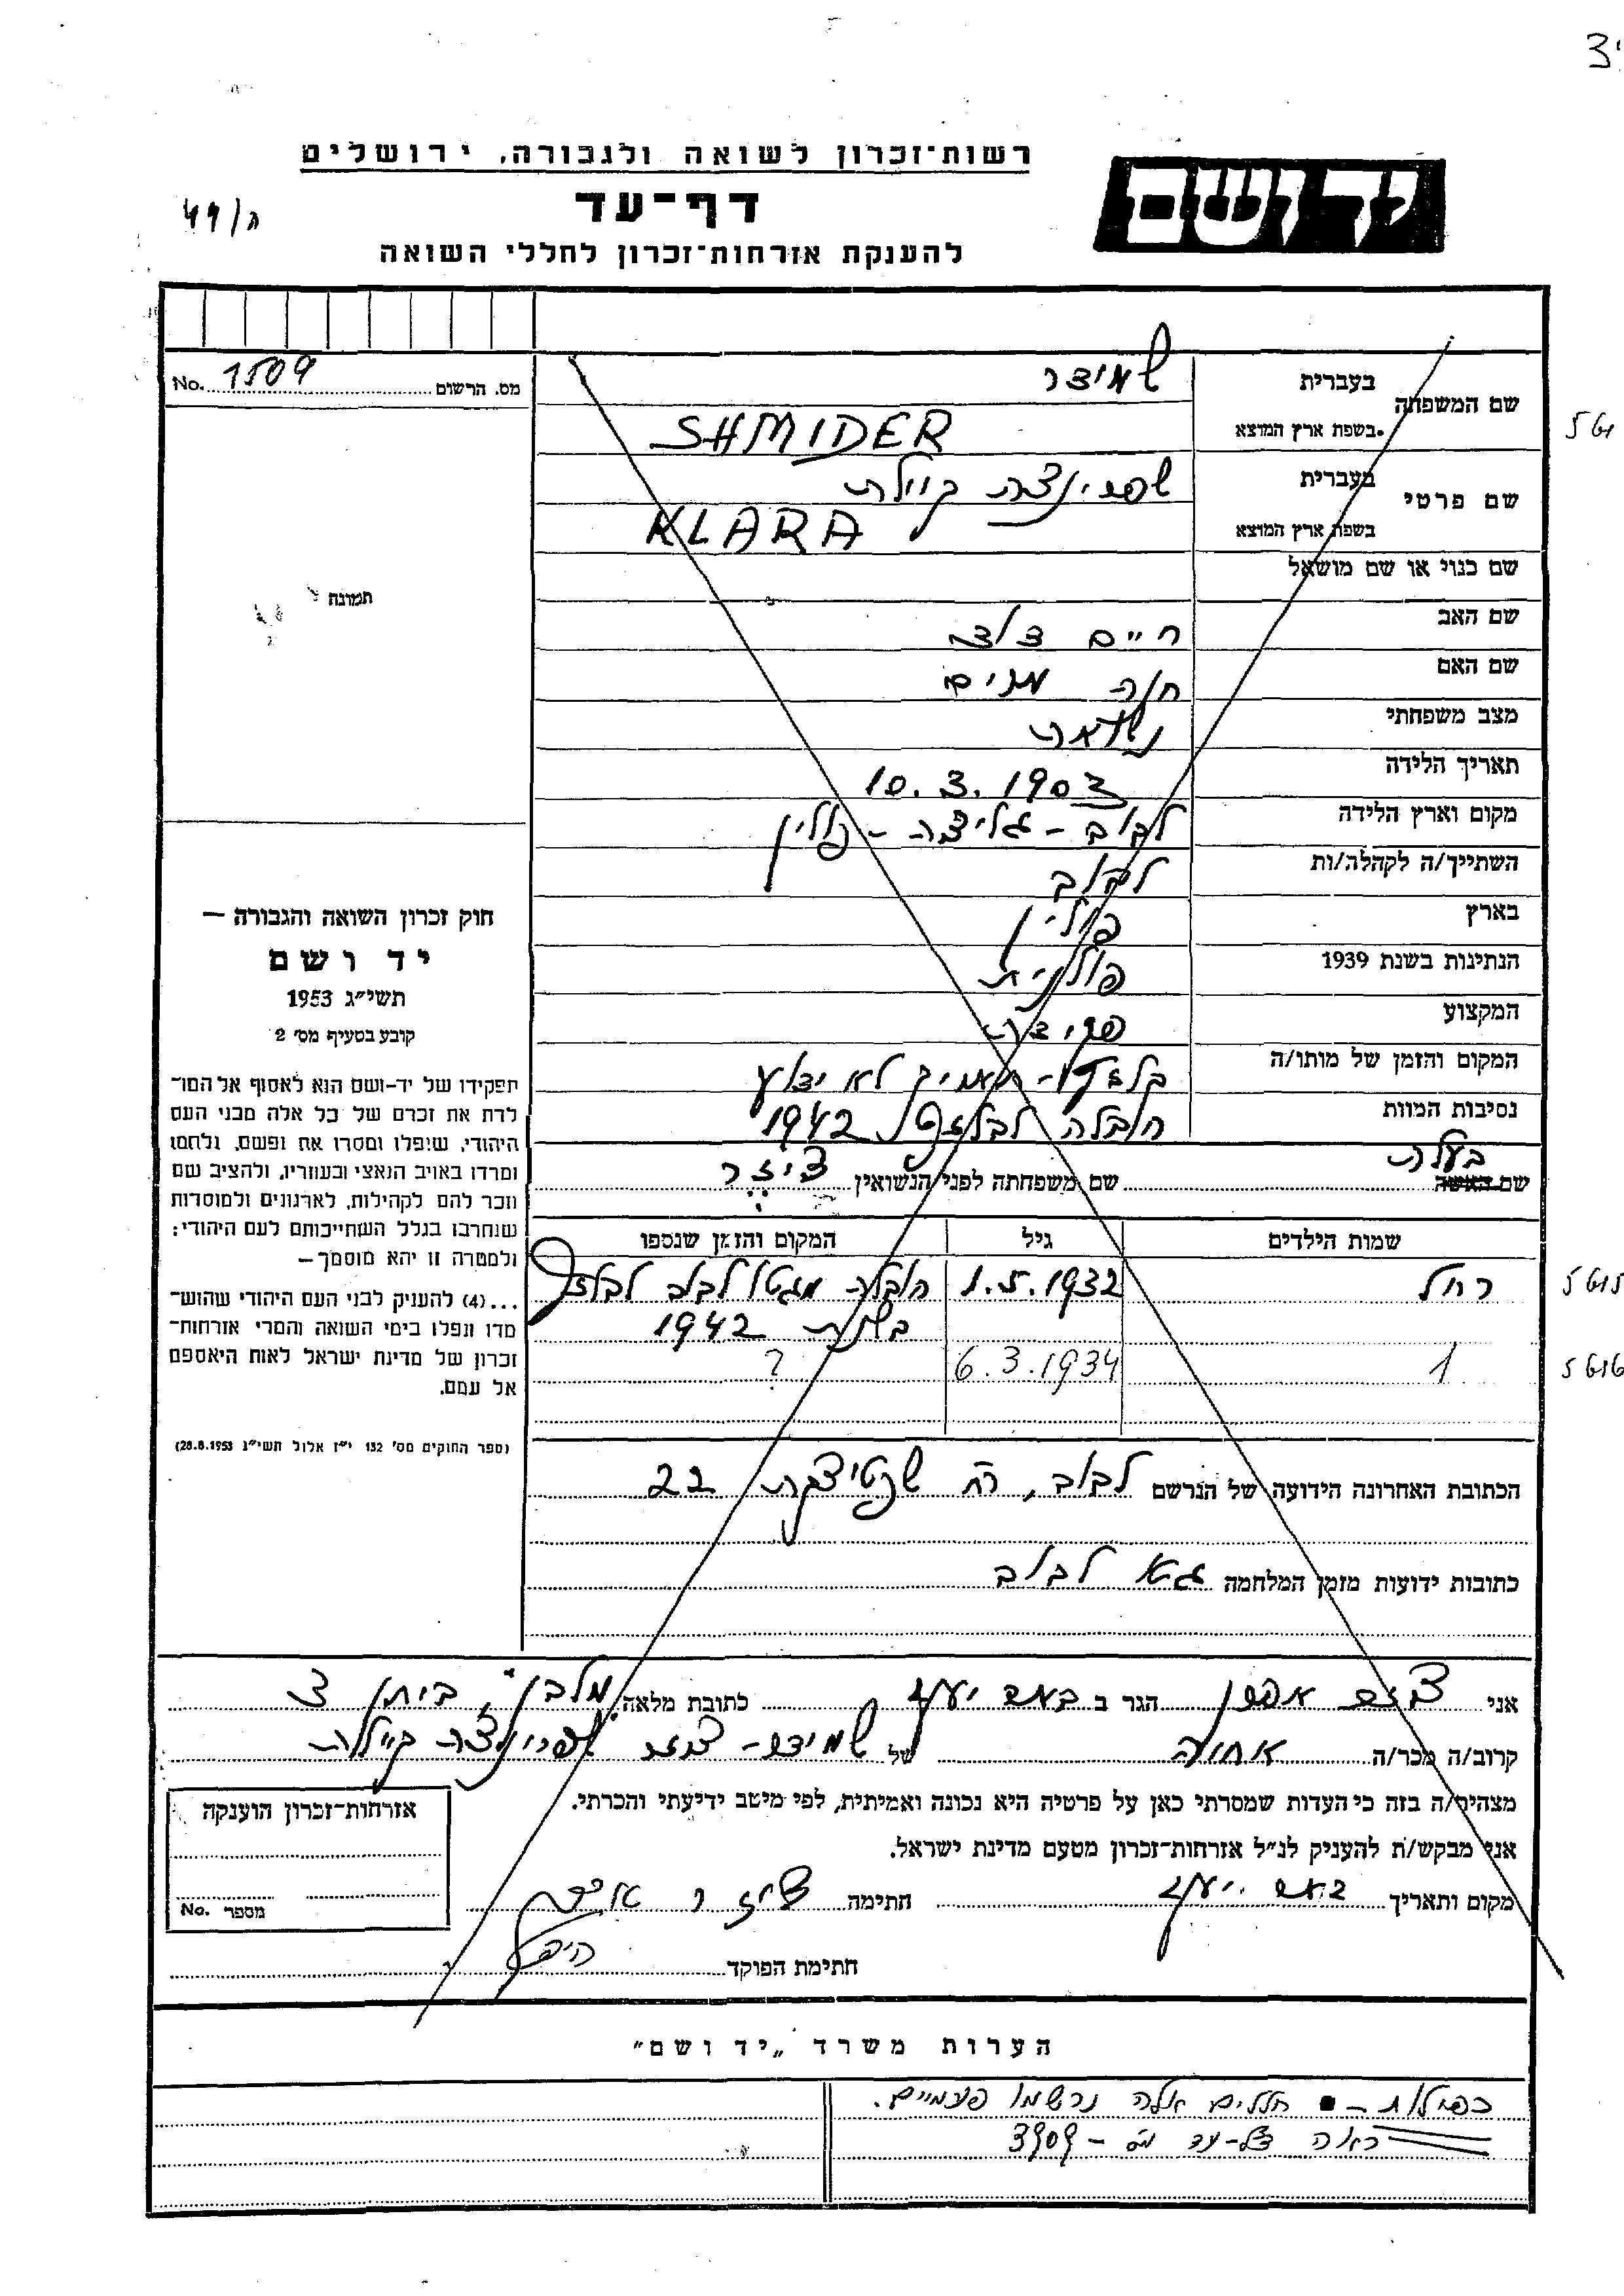 רשות־זכרון לשואה ולגבורה, ירושלים
יד ושם
דף־עד
ה/49
להענקת אזרחות־זכרון לחללי השואה
מס. הרשום 1509 No.
שם המשפחה
בעברית שמידר
בשפת ארץ המוצא SHMIDER
שם פרטי
בעברית שפרינצה קיילה
בשפת ארץ המוצא KLARA
שם כנוי או שם מושאל
תמונה
שם האב חיים
שם האם חנה מרים
מצב משפחתי נשואה
תאריך הלידה 10.3.1903
מקום וארץ הלידה לבוב - גליציה - פולין
השתייך/ה לקהלה/ות לבוב
בארץ פולין
הנתינות בשנת 1939 פולנית
המקצוע פקידה
המקום והזמן של מותו/ה בלזץ - תאריך לא ידוע
נסיבות המוות הובלה לבלזץ 1942
בעלה
שם האשה שם משפחתה לפני הנשואין
שמות הילדים גיל המקום והזמן שנספו
רחל 1.5.1932 הובלה מגטו לבוב לבלזץ
בשנת 1942
1 6.3.1934 ?
חוק זכרון השואה והגבורה —
יד ושם
תשי״ג 1953
קובע בסעיף מס׳ 2
תפקידו של יד-ושם הוא לאסוף אל המו־
לדת את זכרם של כל אלה מבני העם
היהודי, שנפלו ומסרו את נפשם, נלחמו
ומרדו באויב הנאצי ובעוזריו, ולהציב שם
וזכר להם לקהילות, לארגונים ולמוסדות
שנחרבו בגלל השתייכותם לעם היהודי;
ולמטרה זו יהא מוסמך—
...(4) להעניק לבני העם היהודי שהוש־
מדו ונפלו בימי השואה והמרי אזרחות־
זכרון של מדינת ישראל לאות היאספם
אל עמם.
(ספר החוקים מס׳ 132 י״ז אלול תשי״ג 28.8.1953)
הכתובת האחרונה הידועה של הנרשם לבוב, רח 22
כתובות ידועות מזמן המלחמה גטא לבוב
אני הגר ב באר יעקב כתובת מלאה מלבן, ביתן
קרוב/ה מכר/ה אחיה של שמידר שפרינצה קיילה
מצהיר/ה בזה כי העדות שמסרתי כאן על פרטיה היא נכונה ואמיתית, לפי מיטב ידיעתי והכרתי.
אני מבקש/ת להעניק לנ״ל אזרחות־זכרון מטעם מדינת ישראל.
מקום ותאריך באר יעקב חתימה
חתימת הפוקד
אזרחות־זכרון הוענקה
מספר No.
הערות משרד „יד ושם״
כפילות - חללים אלה נרשמו פעמיים.
ראה דף-עד מס - 3909